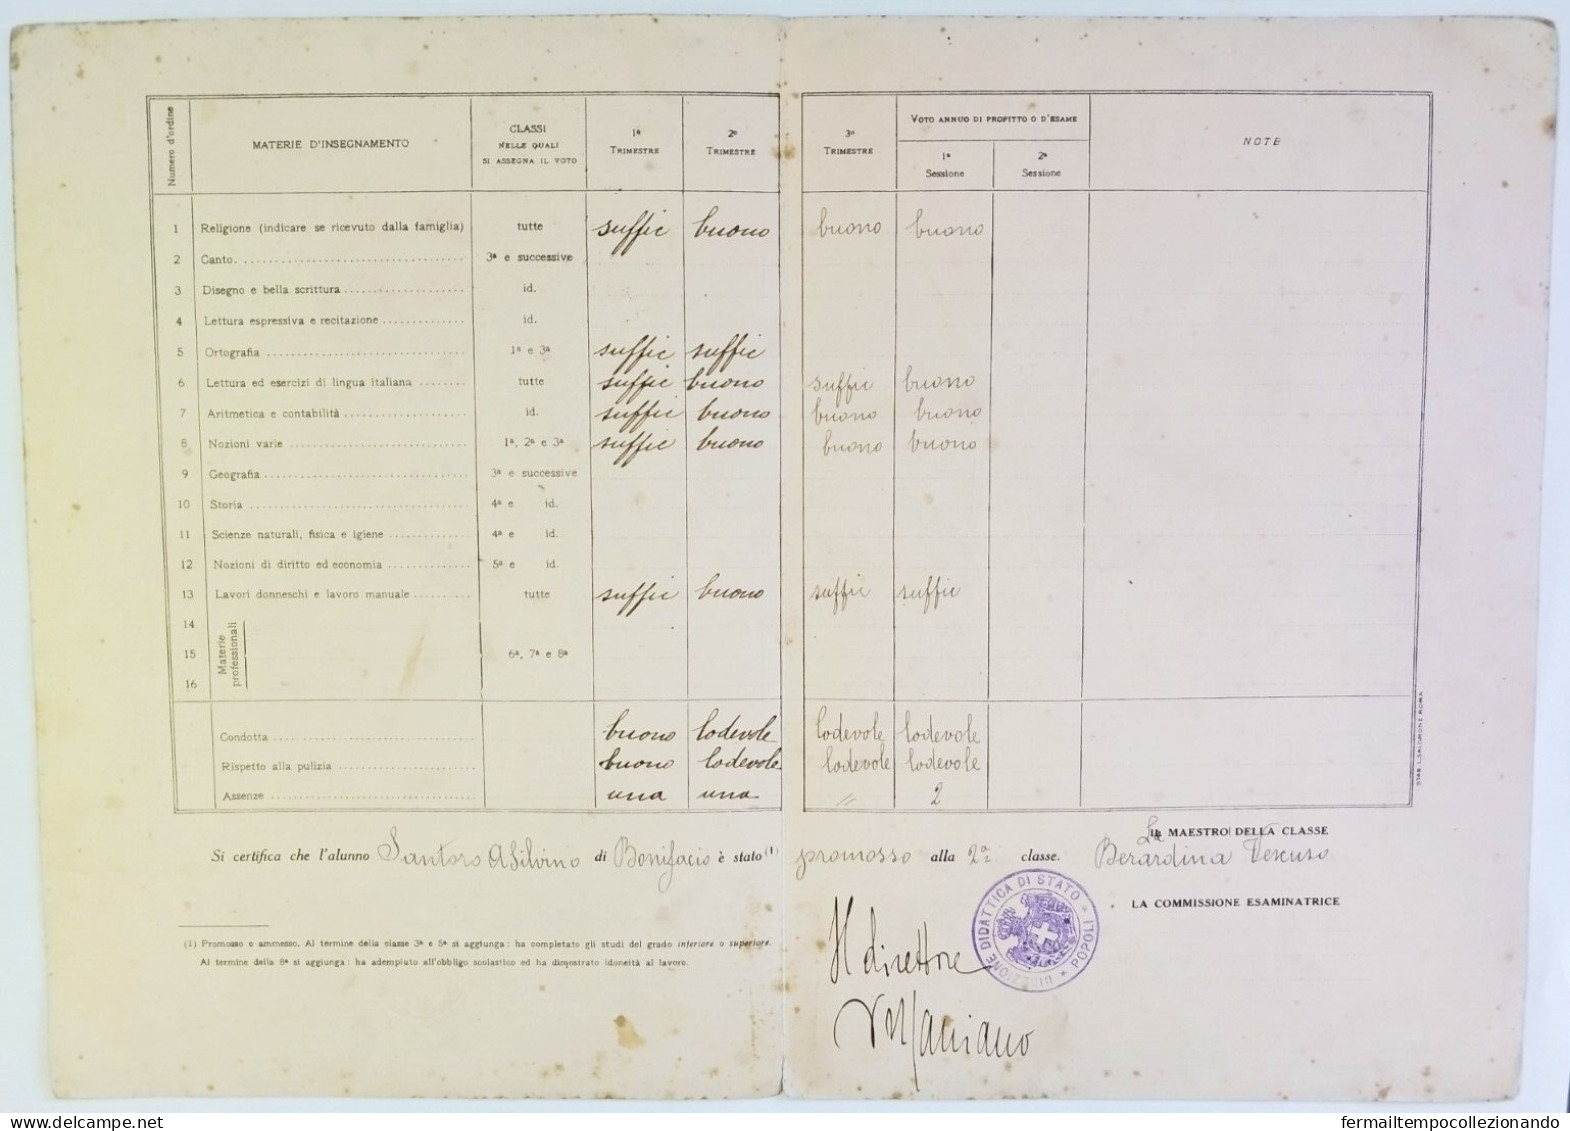 Numero d'ordine MATERIE D'INSEGNAMENTO CLASSI NELLE QUALI SI ASSEGNA IL VOTO 1º TRIMESTRE 2º TRIMESTRE 3º TRIMESTRE VOTO ANNUO DI PROFITTO O D'ESAME 1ª Sessione 2ª Sessione NOTE
1 Religione (indicare se ricevuto dalla famiglia) tutte suffic buono buono buono
2 Canto. 3ª e successive
3 Disegno e bella scrittura id.
4 Lettura espressiva e recitazione id.
5 Ortografia 1ª e 3ª suffic suffic
6 Lettura ed esercizi di lingua italiana tutte suffic buono suffic buono
7 Aritmetica e contabilità id. suffic buono buono buono
8 Nozioni varie 1ª, 2ª e 3ª suffic buono buono buono
9 Geografia 3ª e successive
10 Storia 4ª e id.
11 Scienze naturali, fisica e igiene 4ª e id.
12 Nozioni di diritto ed economia 5ª e id.
13 Lavori donneschi e lavoro manuale tutte suffic buono suffic suffic
14
15 Materie professionali 6ª, 7ª e 8ª
16
Condotta buono lodevole lodevole lodevole
Rispetto alla pulizia buono lodevole lodevole lodevole
Assenze una una // 2
STAB. L. SALOMONE ROMA
La MAESTRO DELLA CLASSE
Si certifica che l'alunno Santoro Asilvino di Bonifacio è stato (1) promosso alla 2ª classe. Berardina Vescuso
LA COMMISSIONE ESAMINATRICE
DIREZIONE DIDATTICA DI STATO * POPOLI *
Il direttore
(1) Promosso o ammesso. Al termine della classe 3ª e 5ª si aggiunga: ha completato gli studi del grado inferiore o superiore.
Al termine della 8ª si aggiunga: ha adempiuto all'obbligo scolastico ed ha dimostrato idoneità al lavoro.
fermailtempocollezionando